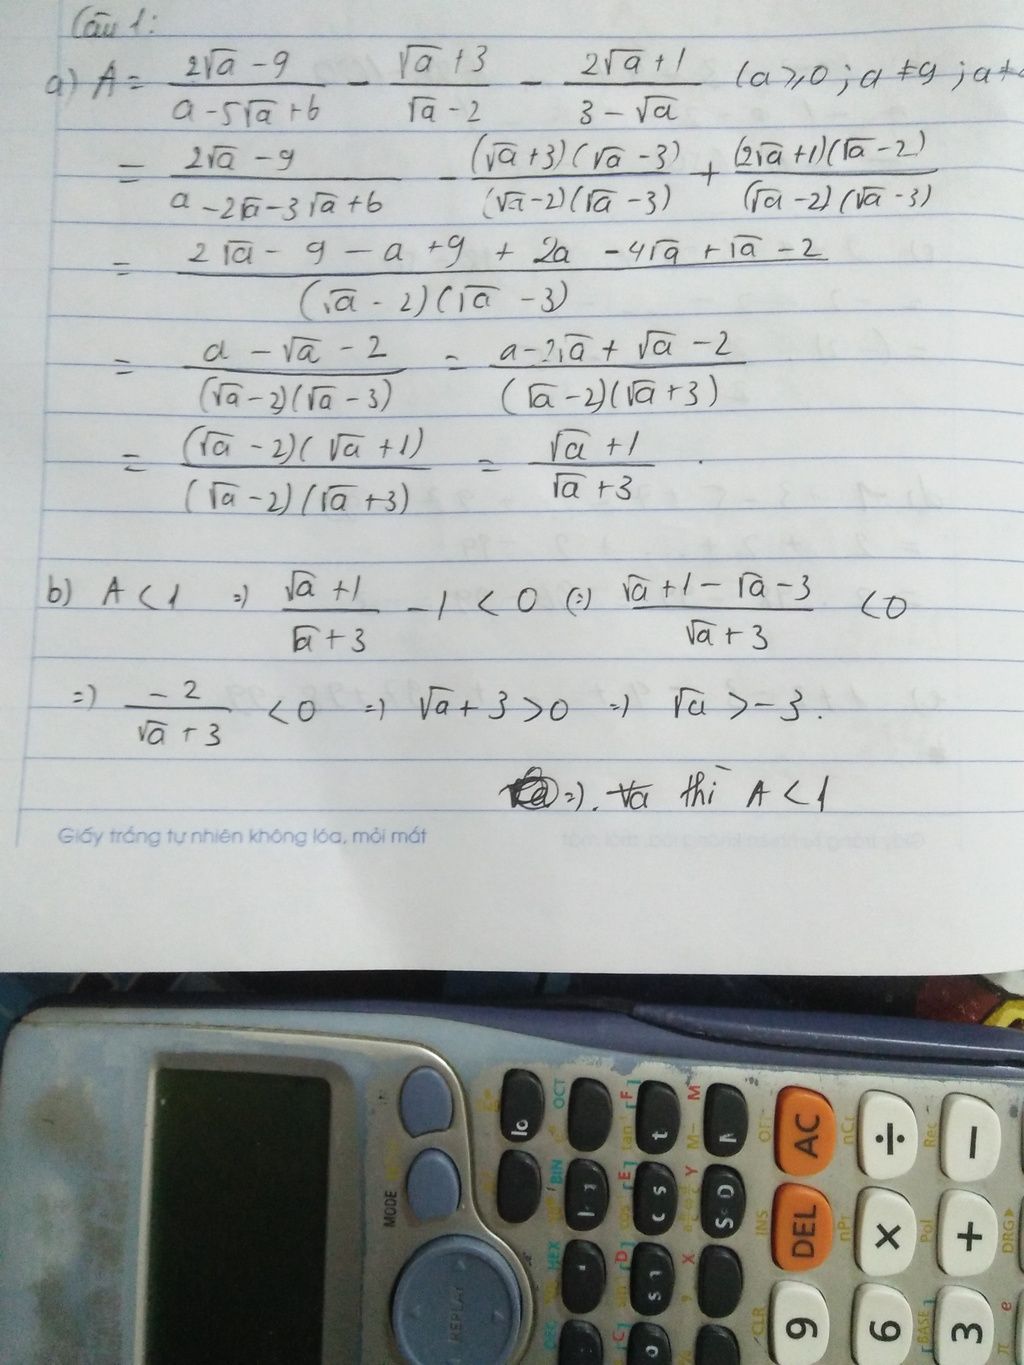 Câu 1:
a) A = (2√a - 9)/(a - 5√a + 6) - (√a + 3)/(√a - 2) - (2√a + 1)/(3 - √a) (a ≥ 0; a ≠ 9; a ≠
= (2√a - 9)/(a - 2√a - 3√a + 6) - ((√a + 3)(√a - 3))/((√a - 2)(√a - 3)) + ((2√a + 1)(√a - 2))/((√a - 2)(√a - 3))
= (2√a - 9 - a + 9 + 2a - 4√a + √a - 2)/((√a - 2)(√a - 3))
= (a - √a - 2)/((√a - 2)(√a - 3)) = (a - 2√a + √a - 2)/((√a - 2)(√a + 3))
= ((√a - 2)(√a + 1))/((√a - 2)(√a + 3)) = (√a + 1)/(√a + 3) .
b) A < 1 =) (√a + 1)/(√a + 3) - 1 < 0 (=) (√a + 1 - √a - 3)/(√a + 3) < 0
=) (-2)/(√a + 3) < 0 =) √a + 3 > 0 =) √a > -3.
=). ∀a thì A < 1
Giấy trắng tự nhiên không lóa, mỏi mắt
MODE
REPLAY
AC
÷
−
DEL
×
+
9
6
3
OCT
BIN
HEX
DEC
M−
M
INS
nPr
nCr
Pol
Rec
DRG▸
CLR
[BASE]
π
e